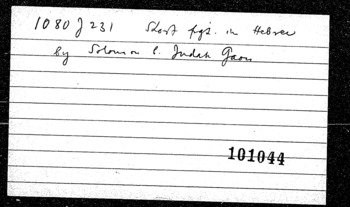 1080 J 231 Short fgt. in Hebrew
by Solomon b. Judah Gaon
101044